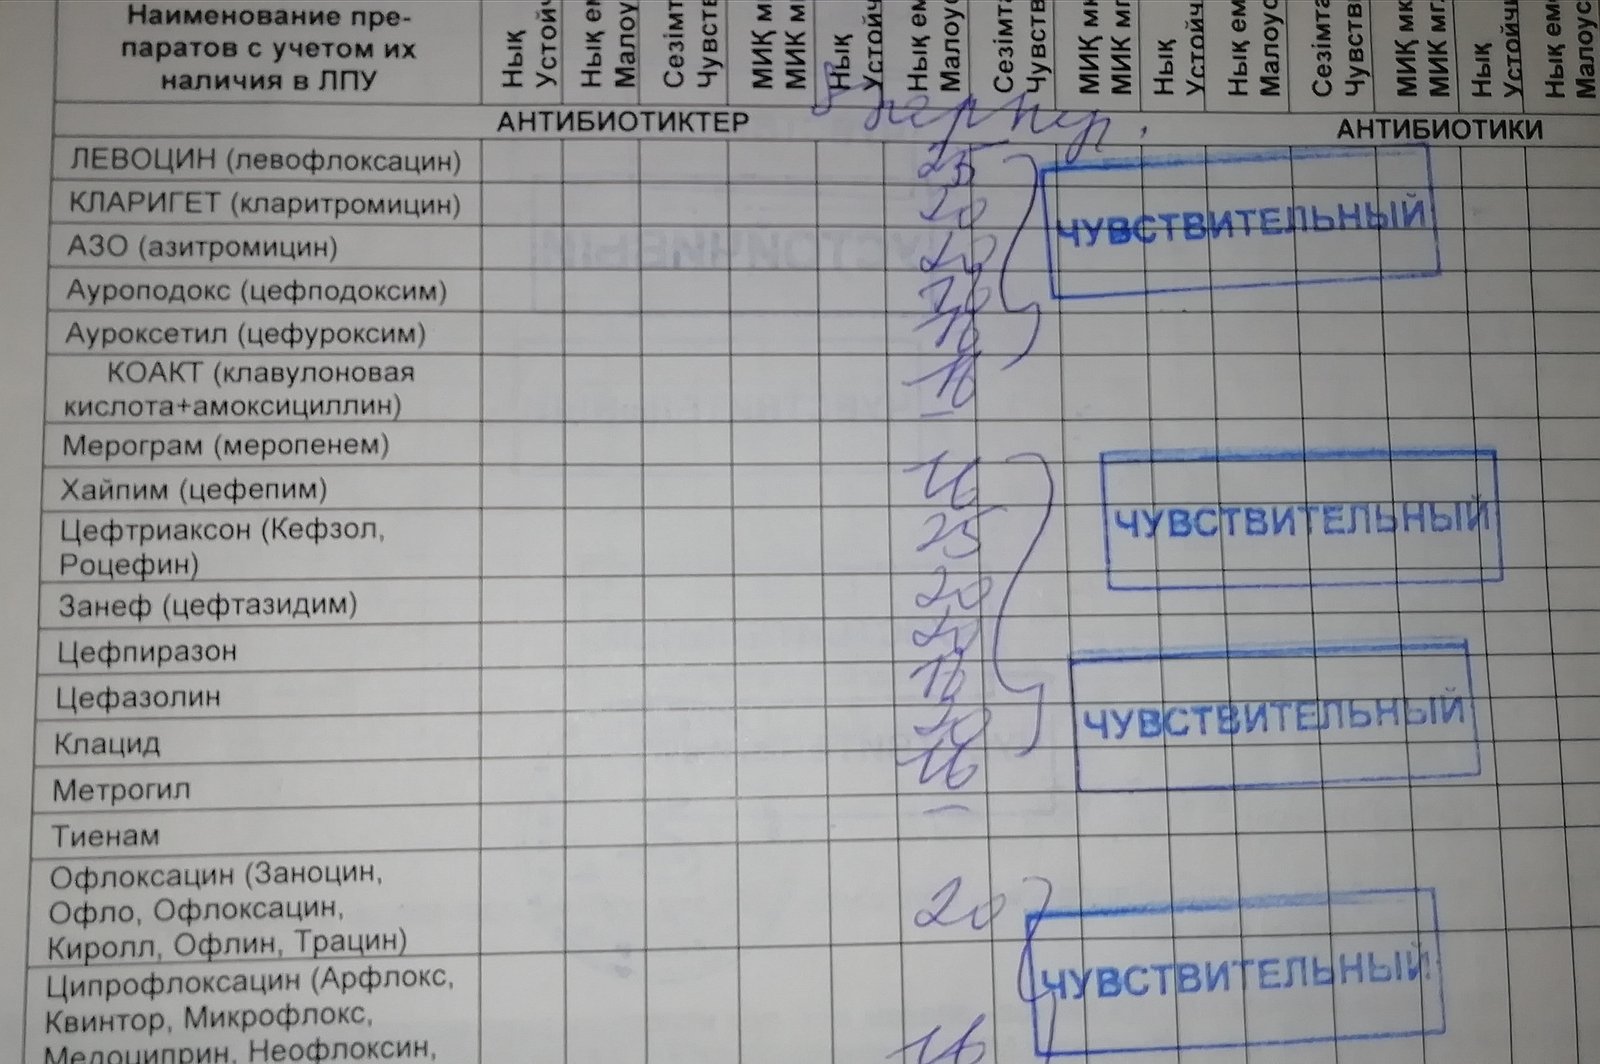 Наименование пре-
паратов с учетом их
наличия в ЛПУ
Нық
Устойч
Нық ем
Малоус
Сезімт
Чувств
МИҚ мк
МИК мг
Нық
Устойч
Нық ем
Малоус
Сезімта
Чувств
МИҚ мк
МИК мг
Нық
Устойчи
Нық ем
Малоус
Сезімта
Чувств
МИҚ мк
МИК мг
Нық
Устойчи
Нық ем
Малоус
АНТИБИОТИКТЕР
АНТИБИОТИКИ
ЛЕВОЦИН (левофлоксацин) 25
КЛАРИГЕТ (кларитромицин) 20
АЗО (азитромицин) 20
ЧУВСТВИТЕЛЬНЫЙ
Ауроподокс (цефподоксим)
Ауроксетил (цефуроксим)
КОАКТ (клавулоновая
кислота+амоксициллин)
Мерограм (меропенем)
Хайпим (цефепим) 16
Цефтриаксон (Кефзол, 25
Роцефин)
ЧУВСТВИТЕЛЬНЫЙ
Занеф (цефтазидим) 20
Цефпиразон 20
Цефазолин
Клацид 20
ЧУВСТВИТЕЛЬНЫЙ
Метрогил 16
Тиенам
Офлоксацин (Заноцин,
Офло, Офлоксацин, 20
Киролл, Офлин, Трацин)
Ципрофлоксацин (Арфлокс,
ЧУВСТВИТЕЛЬНЫЙ
Квинтор, Микрофлокс,
Медоциприн, Неофлоксин, 16